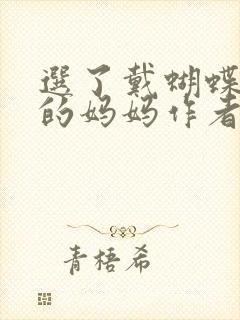 選了戴蝴蝶
的妈妈作者
青梧希